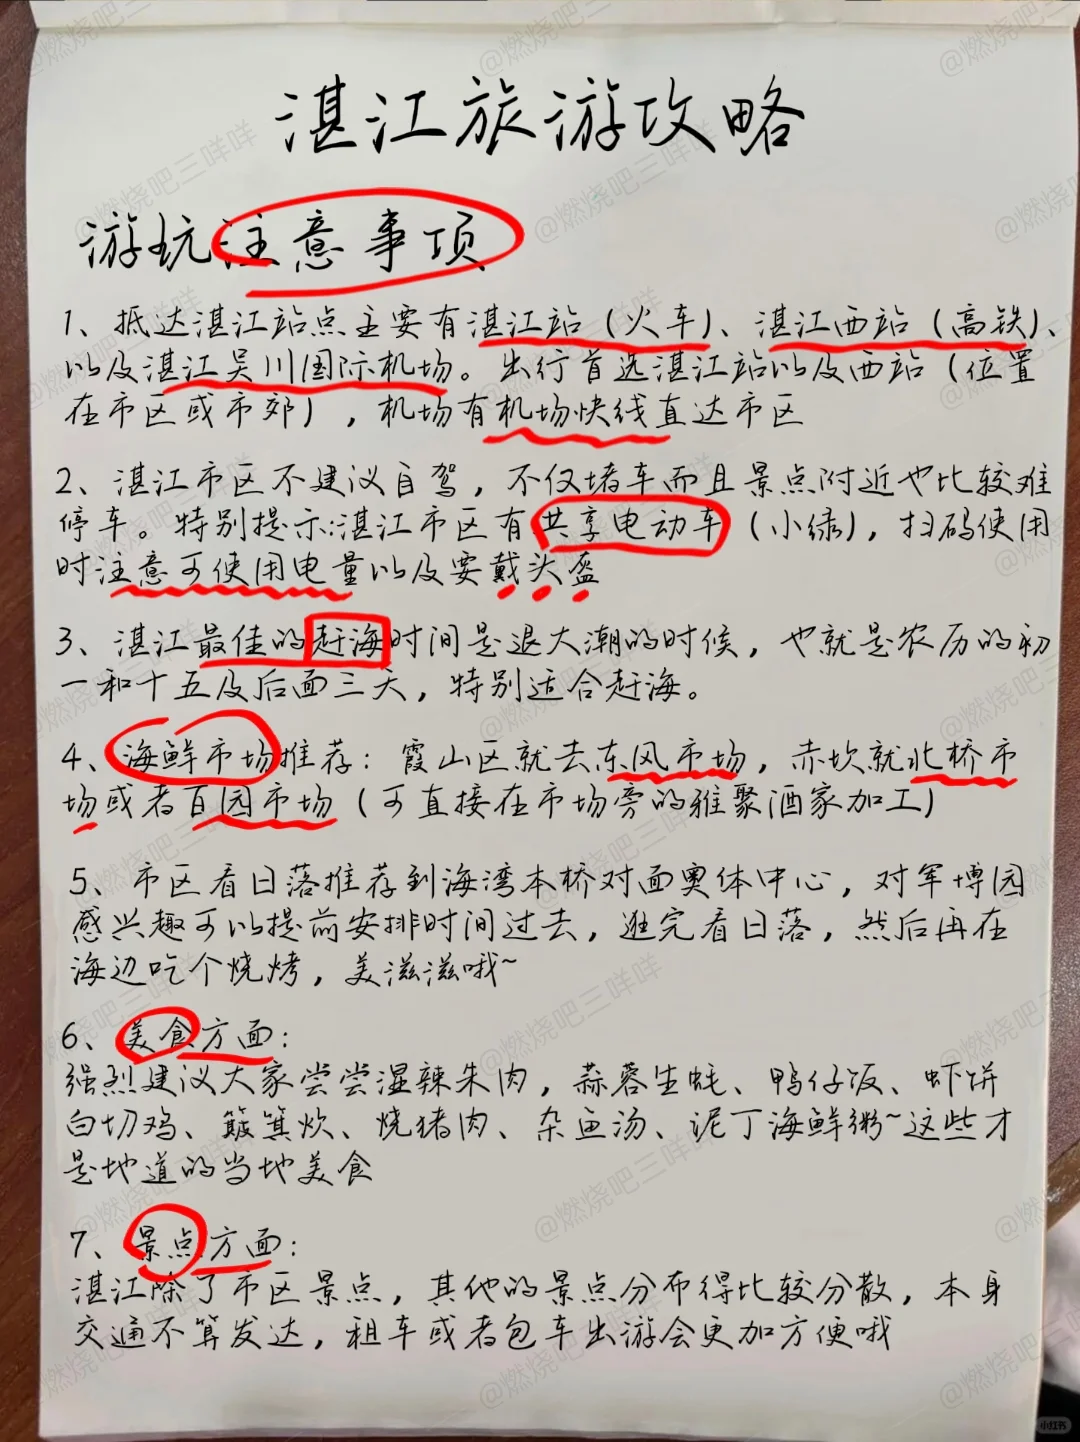 湛江旅游攻略
游玩注意事项
1、抵达湛江站点主要有湛江站（火车）、湛江西站（高铁）、
以及湛江吴川国际机场。出行首选湛江站以及西站（位置
在市区或市郊），机场有机场快线直达市区
2、湛江市区不建议自驾，不仅堵车而且景点附近也比较难
停车。特别提示:湛江市区有共享电动车（小绿），扫码使用
时注意可使用电量以及要戴头盔
3、湛江最佳的赶海时间是退大潮的时候，也就是农历的初
一和十五及后面三天，特别适合赶海。
4、海鲜市场推荐：霞山区就去东风市场，赤坎就北桥市
场或者百园市场（可直接在市场旁的雅聚酒家加工）
5、市区看日落推荐到海湾本桥对面奥体中心，对军博园
感兴趣可以提前安排时间过去，逛完看日落，然后再在
海边吃个烧烤，美滋滋哦~
6、美食方面：
强烈建议大家尝尝湿辣朱肉，蒜蓉生蚝、鸭仔饭、虾饼
白切鸡、簸箕炊、烧猪肉、杂鱼汤、泥丁海鲜粥~这些才
是地道的当地美食
7、景点方面：
湛江除了市区景点，其他的景点分布得比较分散，本身
交通不算发达，租车或者包车出游会更加方便哦
@燃烧吧三咩咩
小红书